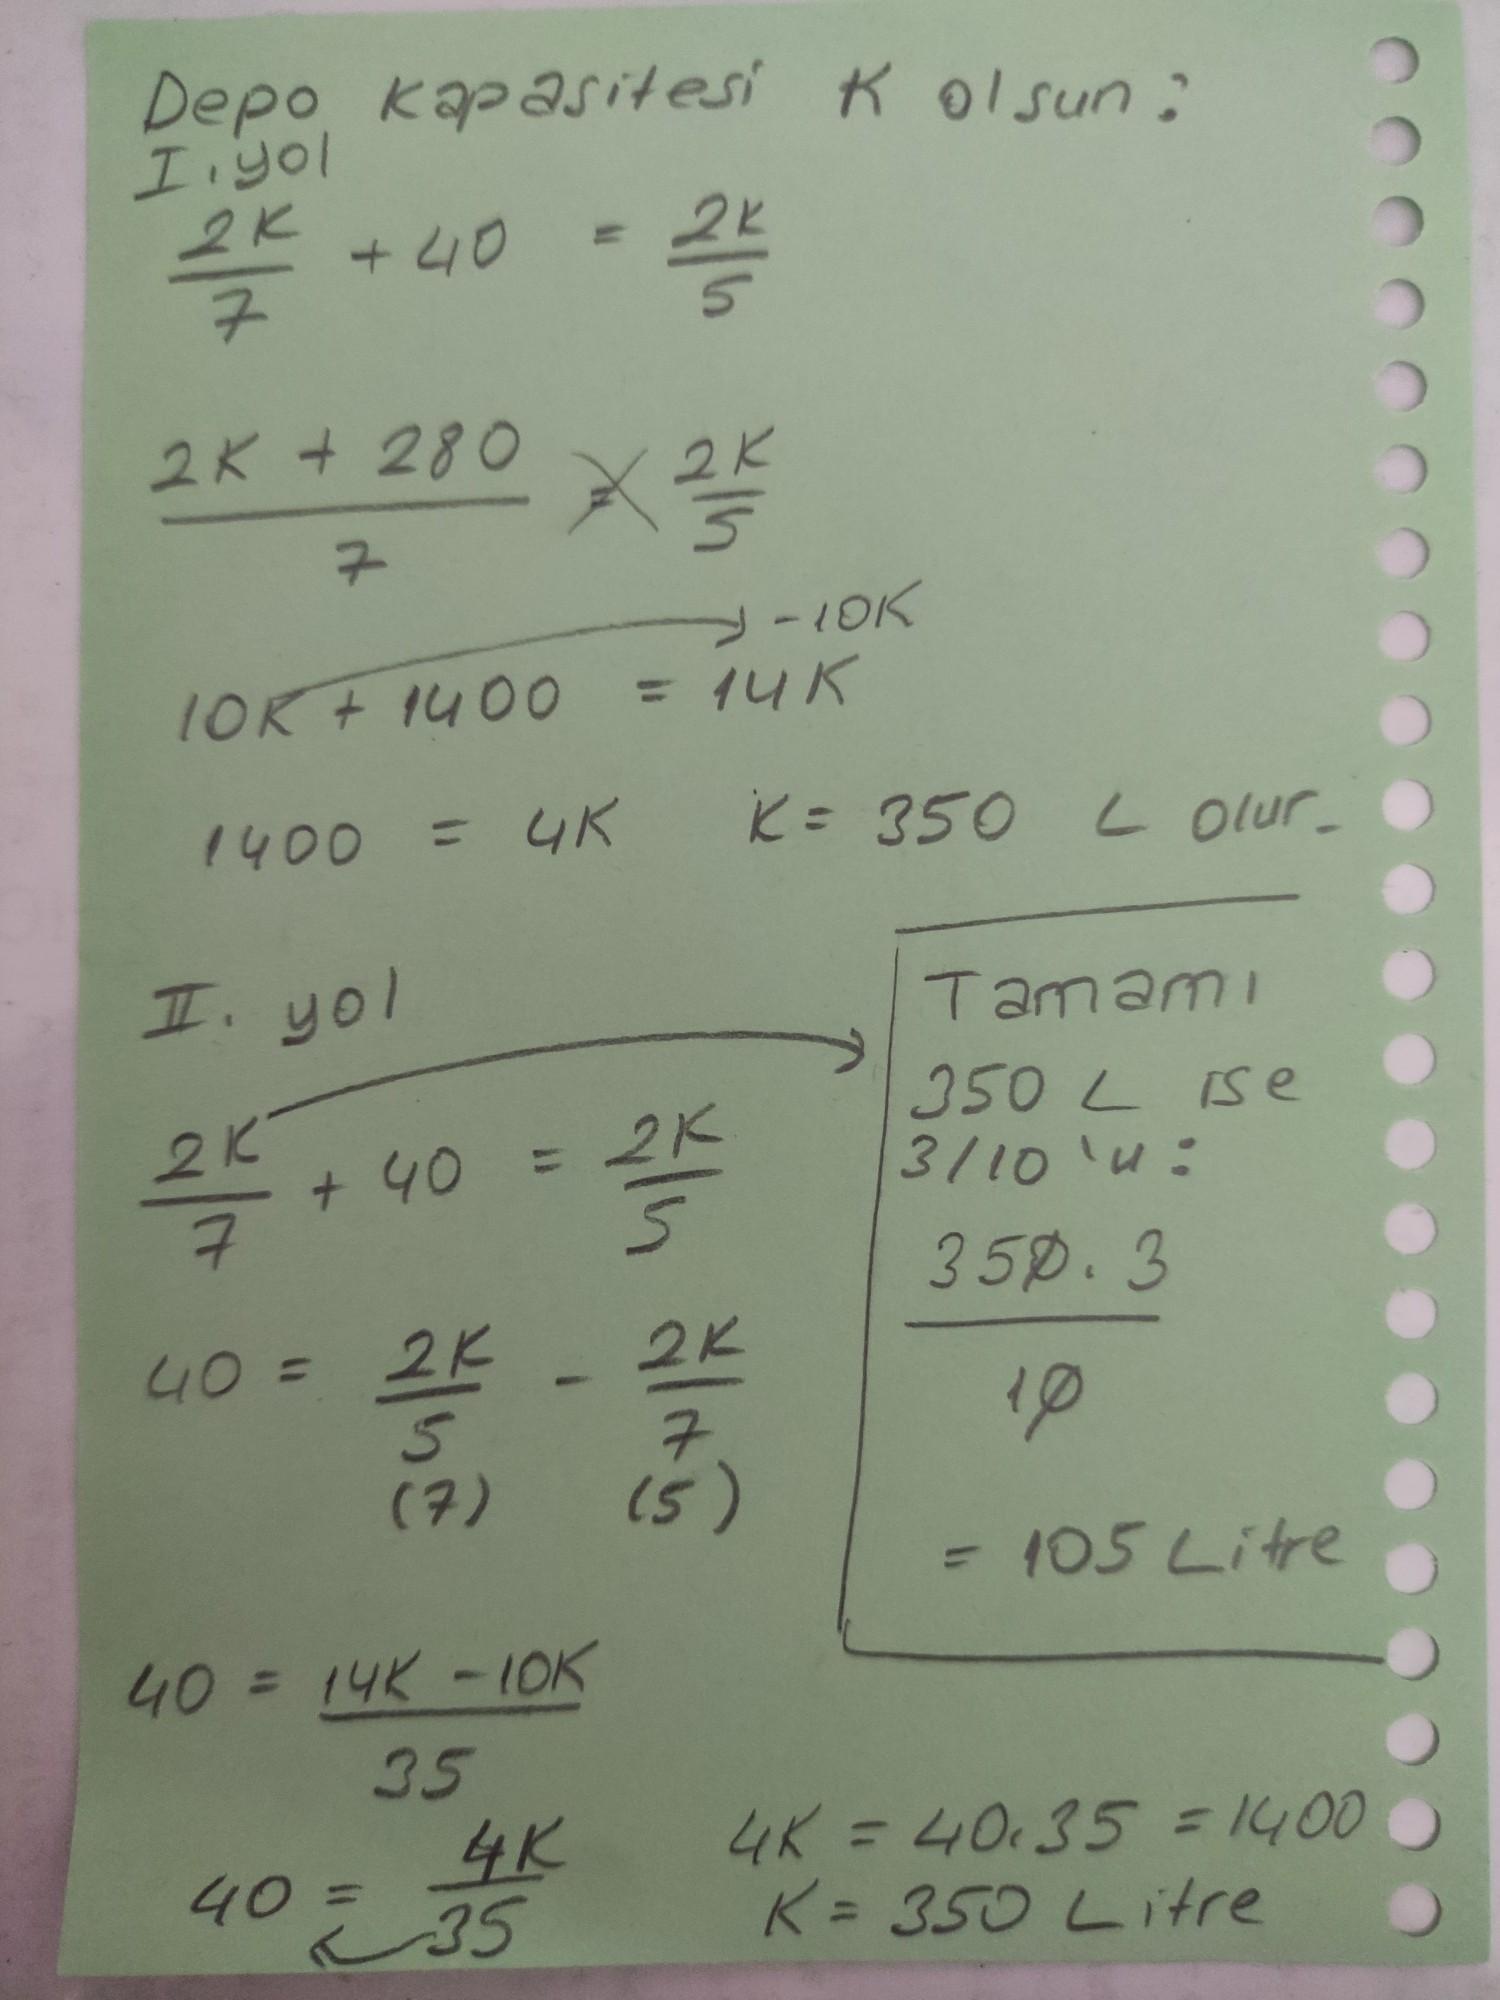 Depo kapasitesi K olsun:
I. yol
2K/7 + 40 = 2K/5
2K + 280/7 = 2K/5
-10K
10K + 1400 = 14K
1400 = 4K K = 350 L olur.
II. yol
2K/7 + 40 = 2K/5
40 = 2K/5 - 2K/7
(7) (5)
40 = 14K - 10K/35
40 = 4K/35
4K = 40.35 = 1400
K = 350 Litre
Tamamı
350 L ise
3/10'u:
350.3
10
= 105 Litre